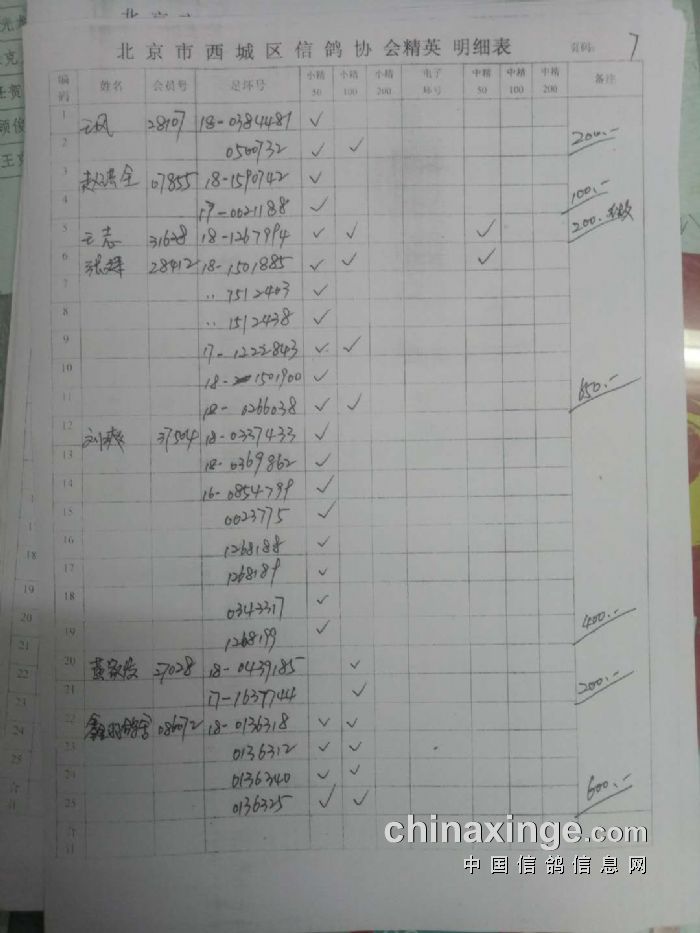 北京市西城区信鸽协会精英明细表 页码: 7
编码 姓名 会员号 足环号 小精50 小精100 小精200 电子环号 中精50 中精100 中精200 备注
1 王凤 28107 18-0384481 ✓
2 0500732 ✓ ✓ 200.-
3 07855 18-1590742 ✓
4 17-0021188 ✓ 100.-
5 王志 31628 18-1267994 ✓ ✓ ✓ 200.
6 张辉 28412 18-1501885 ✓ ✓ ✓
7 〃 1512403 ✓
8 〃 1512438 ✓
9 17-1222843 ✓ ✓
10 18-1501900 ✓
11 18-0266038 ✓ ✓ 650.-
12 37504 18-0337433 ✓
13 18-0369862 ✓
14 16-0854799 ✓
15 0023775 ✓
16 1268188 ✓
17 1268189 ✓
18 0343317 ✓
19 1268199 ✓ 400.-
20 27028 18-0439185 ✓
21 17-1637744 ✓ 200.-
22 086072 18-0136318 ✓ ✓
23 0136312 ✓ ✓
24 0136340 ✓ ✓
25 0136325 ✓ ✓ 600.-
合计
chinaxinge.com
中国信鸽信息网